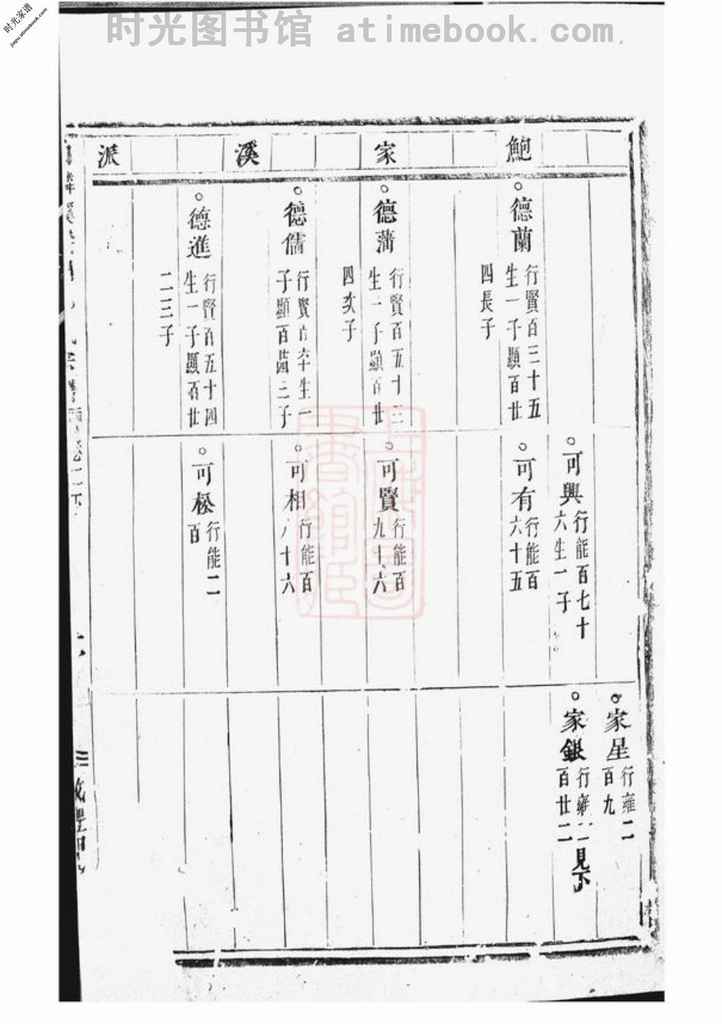 时光图书馆 atimebook.com
时光家谱
jiapu.atimebook.com
鮑家溪派
德蘭
行賢百三十五
生一子顯百廿
四長子
德蒲
行賢百五十三
生一子顯百廿
四次子
德儒
行賢百六十生一
子顯百
三子
德進
行賢百五十四
生一子顯百廿
二三子
可興
行能百七十
六生一子
可有
行能百
六十五
可賢
行能百
九十六
可相
行能百
八十六
可松
行能二
百
家星
行雍二
百九
家銀
行雍二
百廿二
見下